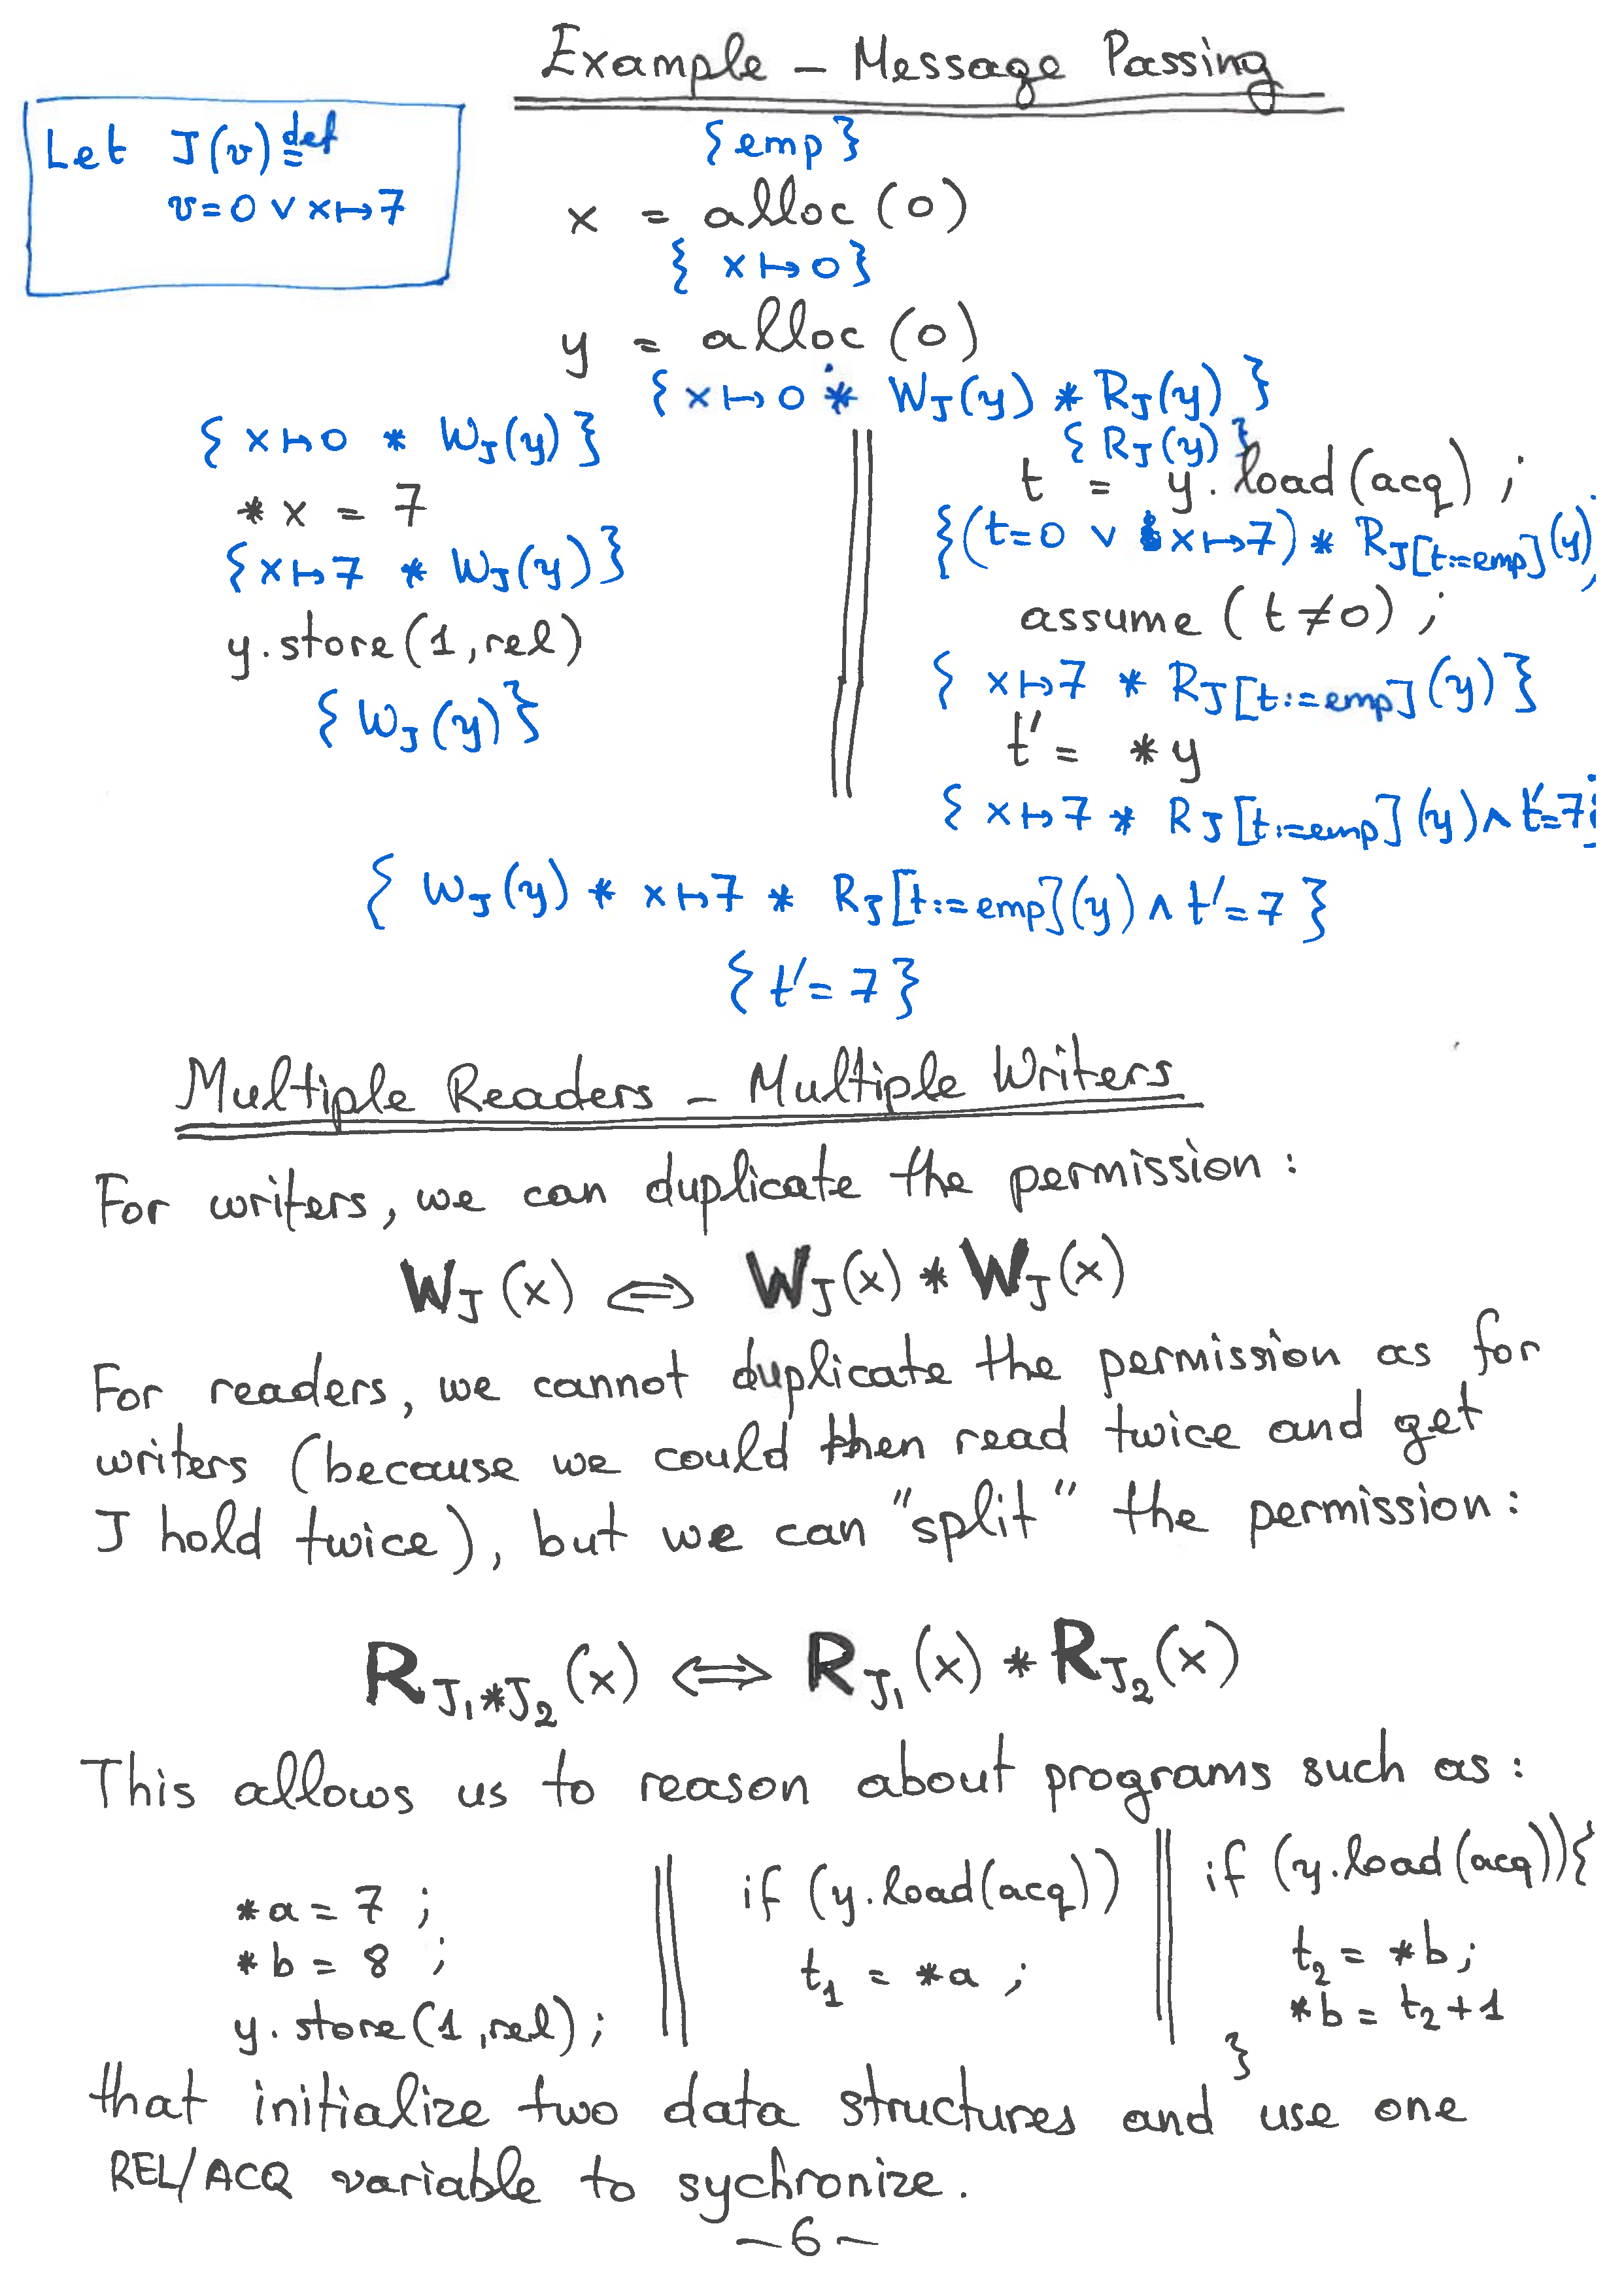 Example – Message Passing
Let J(v) ≝
v=0 ∨ x↦7
{emp}
x = alloc(0)
{ x↦0}
y = alloc(0)
{ x↦0 * W_J(y) * R_J(y) }
{ x↦0 * W_J(y) }
*x = 7
{x↦7 * W_J(y)}
y.store(1,rel)
{ W_J(y) }
{ R_J(y) }
t = y.load(acq) ;
{(t=0 ∨ x↦7) * R_J[t:=emp](y)
assume ( t≠0) ;
{ x↦7 * R_J[t:=emp](y) }
t' = *y
{ x↦7 * R_J[t:=emp](y) ∧ t'=7}
{ W_J(y) * x↦7 * R_J[t:=emp](y) ∧ t'=7 }
{ t'= 7}
Multiple Readers – Multiple Writers
For writers, we can duplicate the permission :
W_J(x) ⇔ W_J(x) * W_J(x)
For readers, we cannot duplicate the permission as for
writers (because we could then read twice and get
J hold twice), but we can "split" the permission :
R_{J₁*J₂}(x) ⇔ R_{J₁}(x) * R_{J₂}(x)
This allows us to reason about programs such as :
*a = 7 ;
*b = 8 ;
y.store(1,rel) ;
if (y.load(acq))
t₁ = *a ;
if (y.load(acq)){
t₂ = *b;
*b = t₂+1
}
that initialize two data structures and use one
REL/ACQ variable to sychronize.
–6–